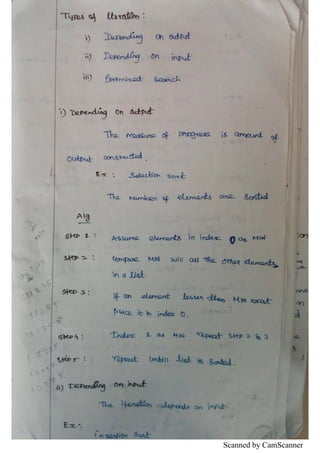 Types of Iteration :
i) Depending on output
ii) Depending on input
iii) Optimized search
i) Depending on output
The measure of progress is amount of
output constructed.
Ex : Selection sort
The number of elements are sorted
Alg
Step 1 : Assume elements in index 0 as MIN
Step 2 : Compare MIN will all the other elements
in a list
Step 3 : If an element lesser than MIN exist
place it in index 0.
Step 4 : Index 1 as MIN repeat step 2 & 3
Step 5 : repeat untill list is sorted.
ii) Depending on input
The iteration depends on input.
Ex :
insertion sort
Scanned by CamScanner